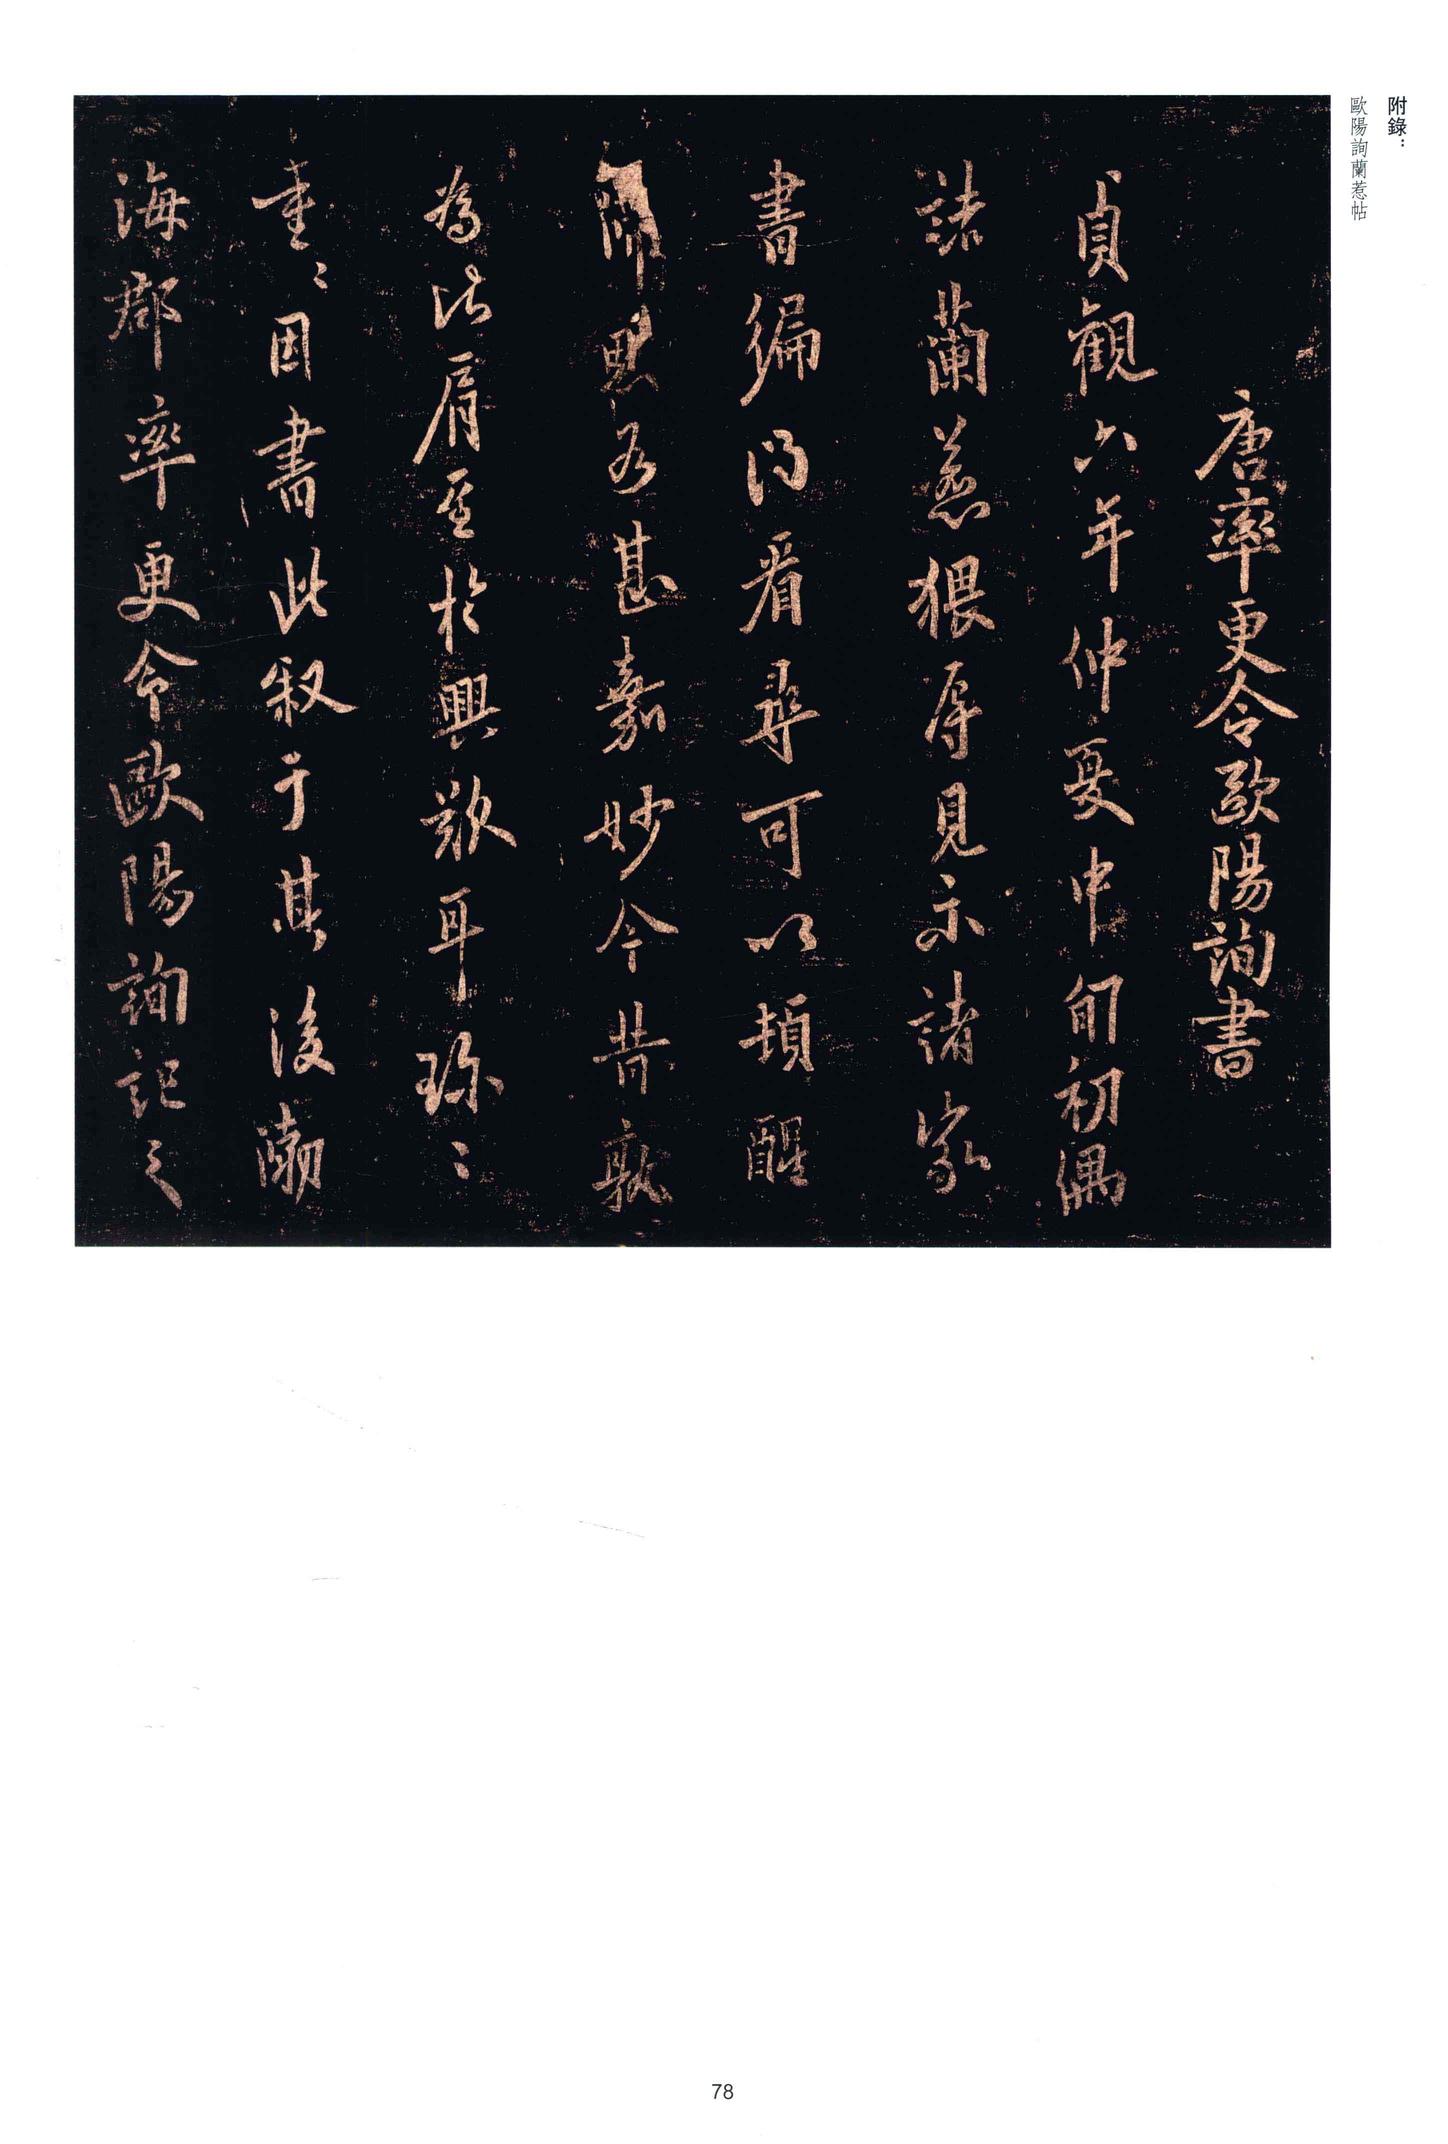 附錄：
歐陽詢蘭惹帖
唐率更令歐陽詢書
貞觀六年仲夏中旬初偶
諸蘭惹猥辱見示諸家
書編得看尋可以頓醒
師思為甚嘉妙今昔孰
為比肩至於興歎耳珍〻
重〻因書此叙于其後渤
海郡率更令歐陽詢記之
78